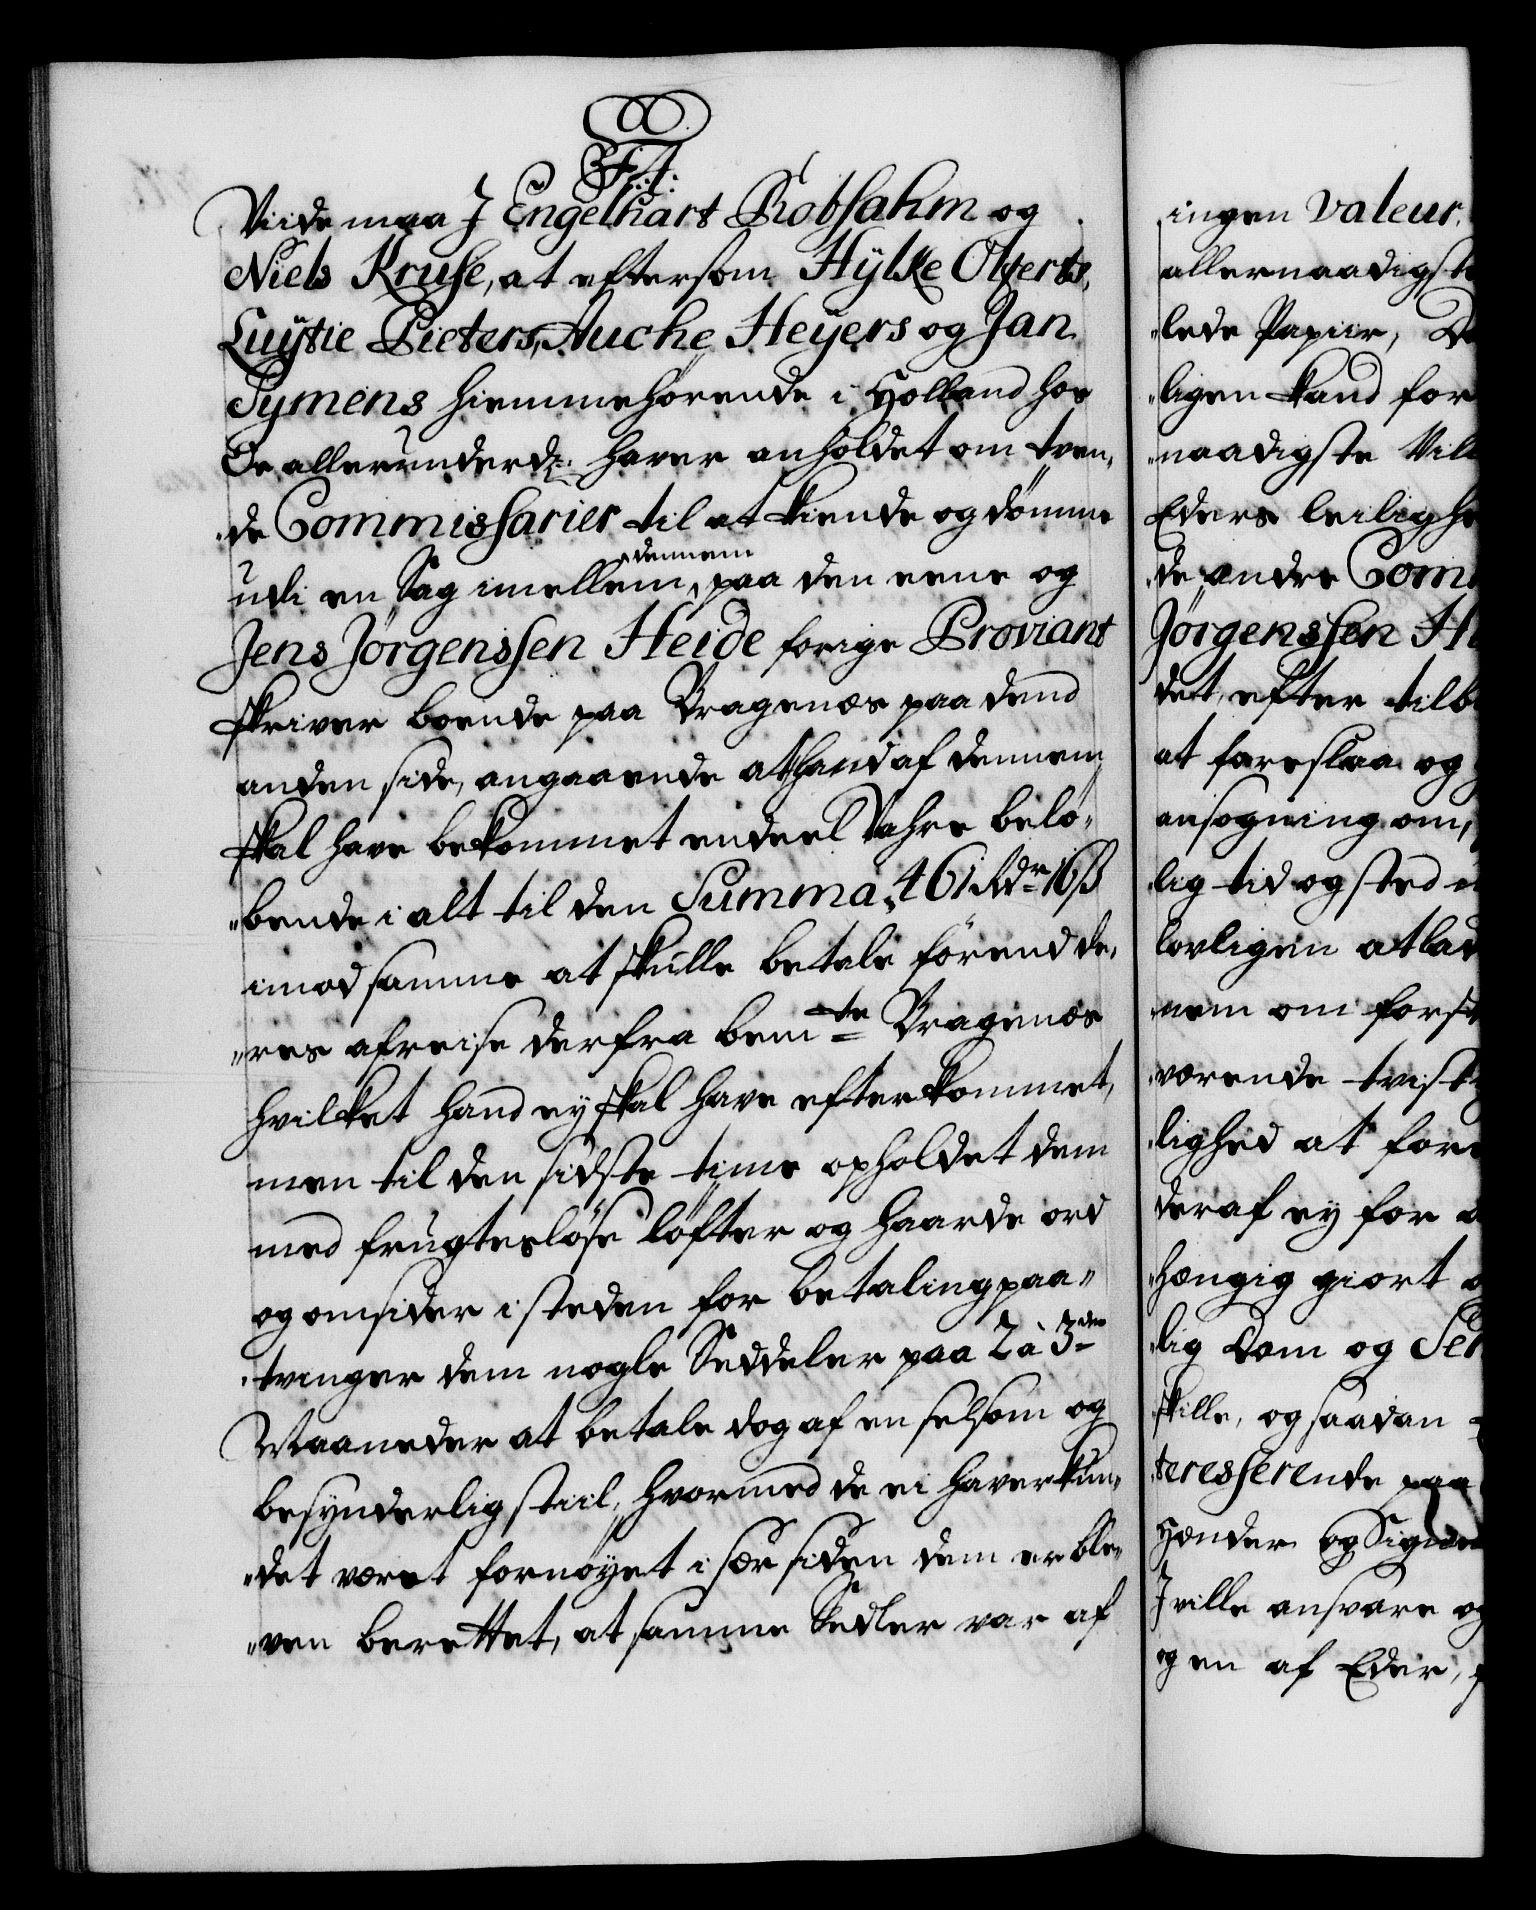 F.4.
Viide maa J Engelhart Robsahm og
Niels Kruse, at eftersom Hylke Olferts,
Luytie Pieters, Aucke Heyers og Jan
Symens hiemmehörende i Holland hos
Os allerunderd: haver anholdet om tven„
„de Commissarier til at kiende og dömme
udi en Sag imellem dennem paa den eene og
Jens Jörgenssen Heide forige Proviant
skriver boende paa Bragenæs paa dend
anden side, angaaende at hand af dennem
skal have bekommet endeel Vahre belö„
„bende i alt til den Summa 461 Rdr 16 ß
imod samme at skulle betale förend de„
„res afreise derfra bemte Bragenæs
hvilket hand ey skal have efterkommet,
men til den sidste time opholdet dem
med frugteslöse löfter og haarde ord
og omsider i steden for betaling paa„
„tvinger dem nogle Seddeler paa 2 à 3de
Maaneder at betale dog af en selsom og
besynderlig stiil, hvormed de ei haver kun„
„det været fornöyet i sær siden dem er ble„
„ven berettet, at samme Sedler var af
ingen valeur,
allernaadigst
„lede Papiir,
„ligen kand for
„naadigste Vil
Eders leiligh
„de andre Com
Jörgenssen H
det, efter tilb
at foreslaa og
ansögning om,
„lig tid og sted
lovligen at lad
„nem om fors
„værende tvist
„lighed at for
deraf ey for
„hængig giort
„lig Dom og Sen
skille, og saadan
„teresserende paa
Hænder og Signe
J ville ansvare og
og en af Eder,